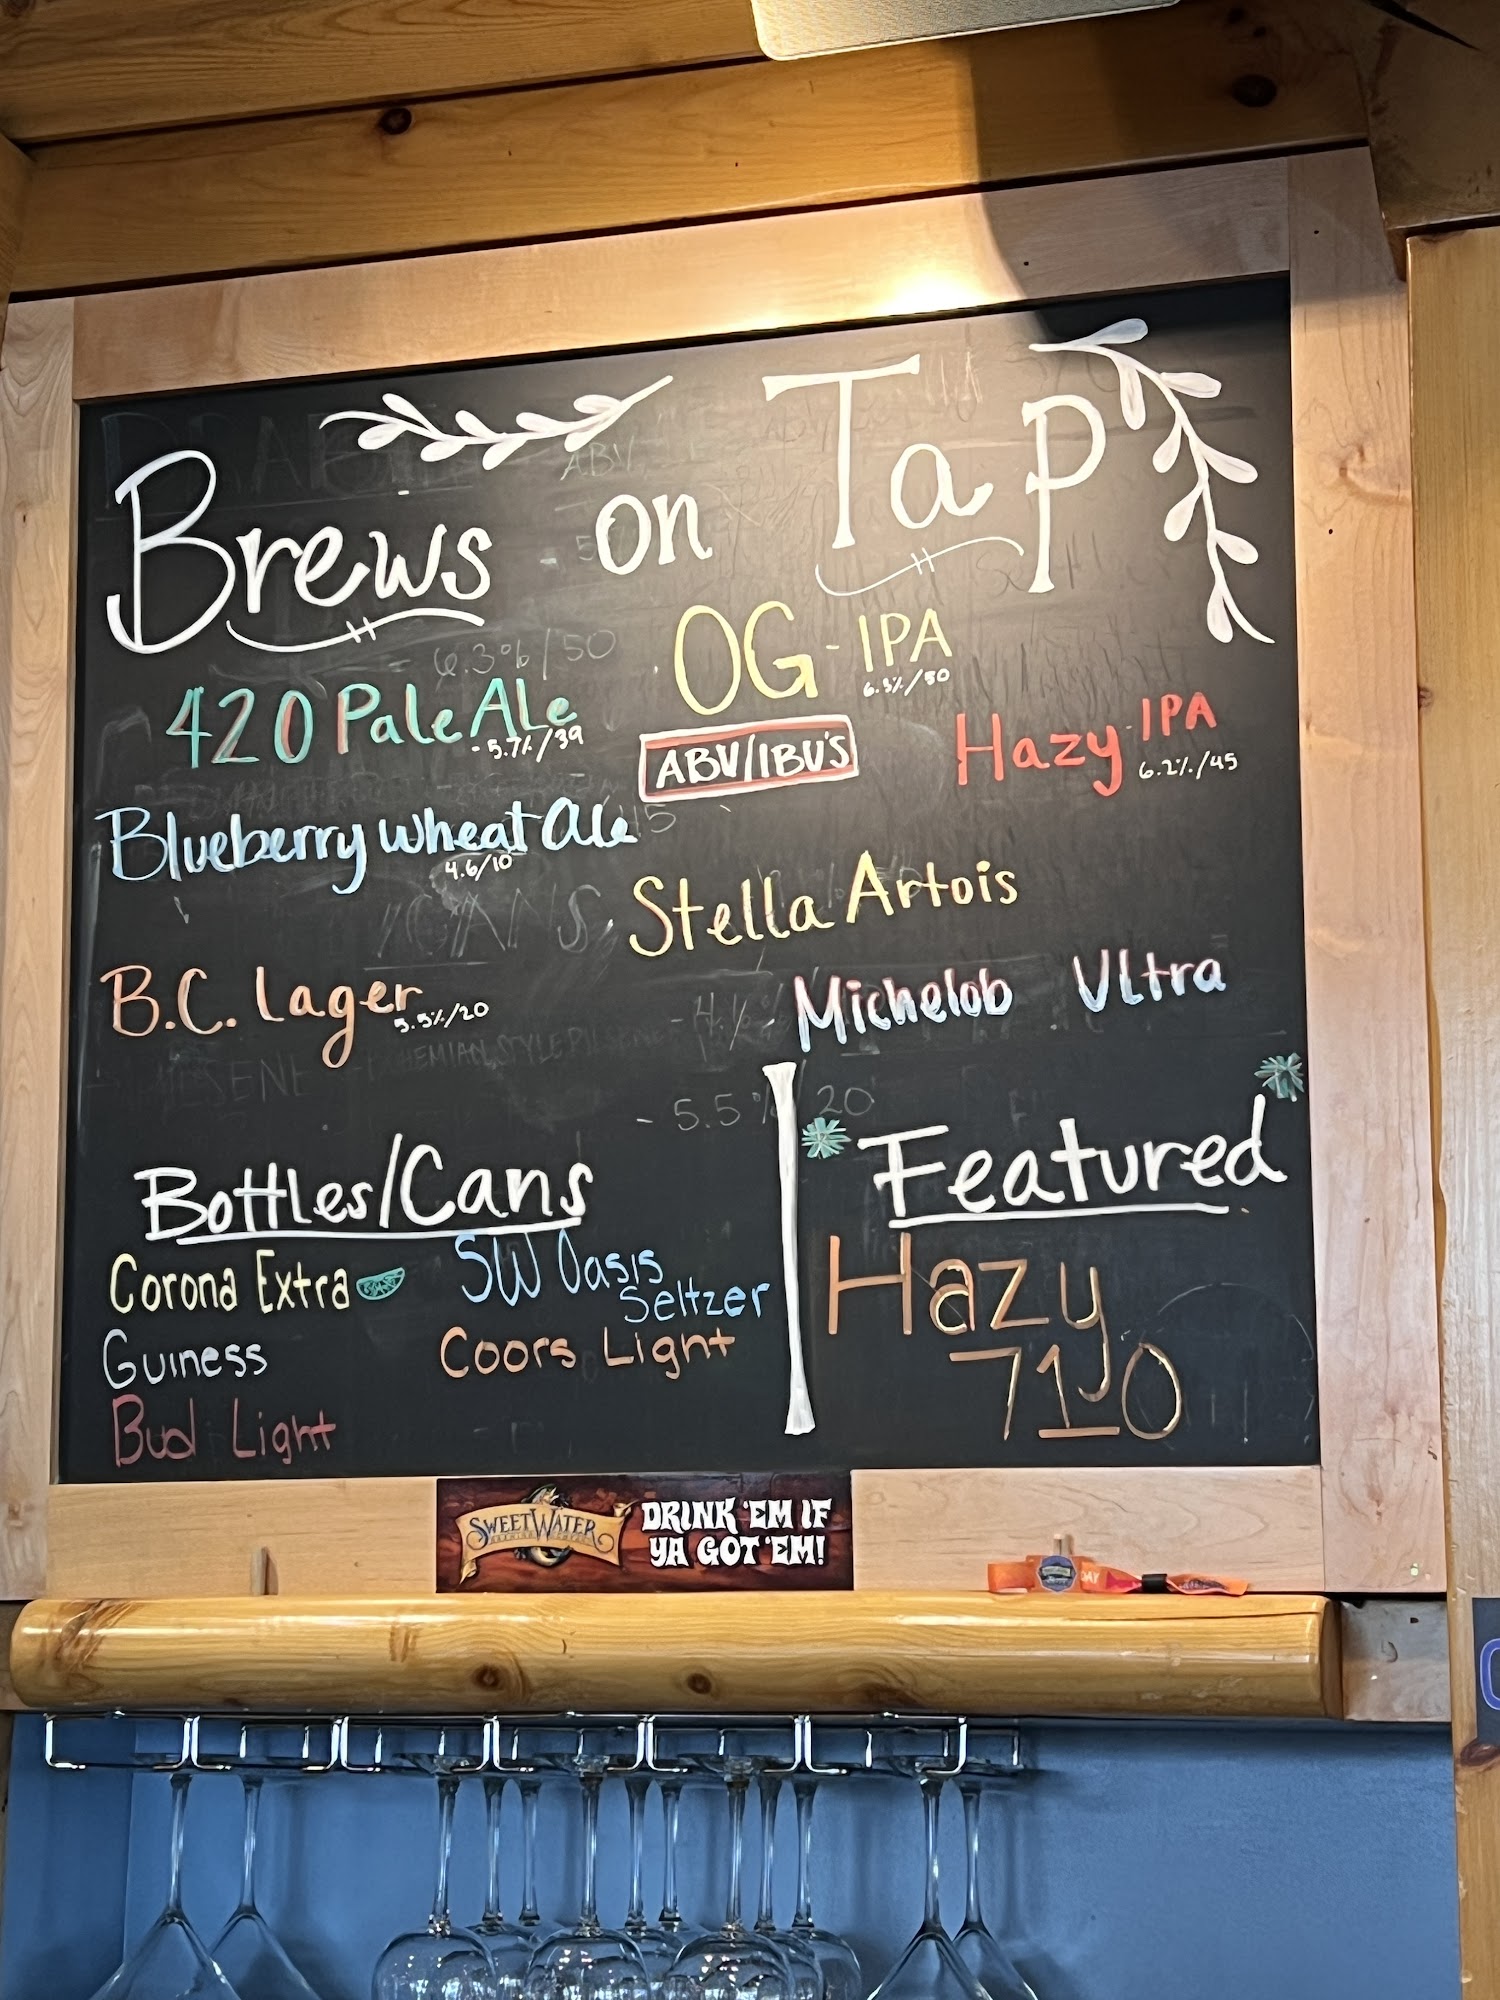 Brews on Tap
OG-IPA
6.3%/50
420 Pale Ale
- 5.7%/39
ABV/IBU'S
Hazy IPA
6.2%/45
Blueberry wheat ale
4.6/10
Stella Artois
B.C. Lager
5.5%/20
Michelob Ultra
Bottles/Cans
Corona Extra
Guiness
Bud Light
SW Oasis
Seltzer
Coors Light
Featured
Hazy
710
SWEETWATER
DRINK 'EM IF
YA GOT 'EM!